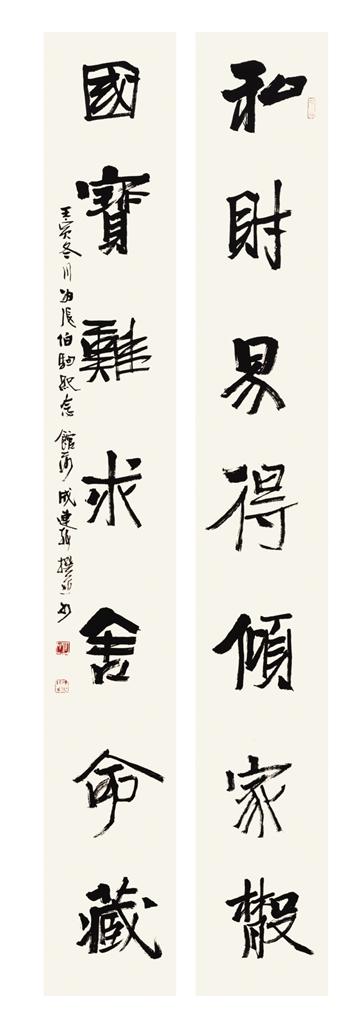 私財易得傾家散
國寶難求舍命藏
壬寅冬月為張伯駒紀念館 成連 撰並書